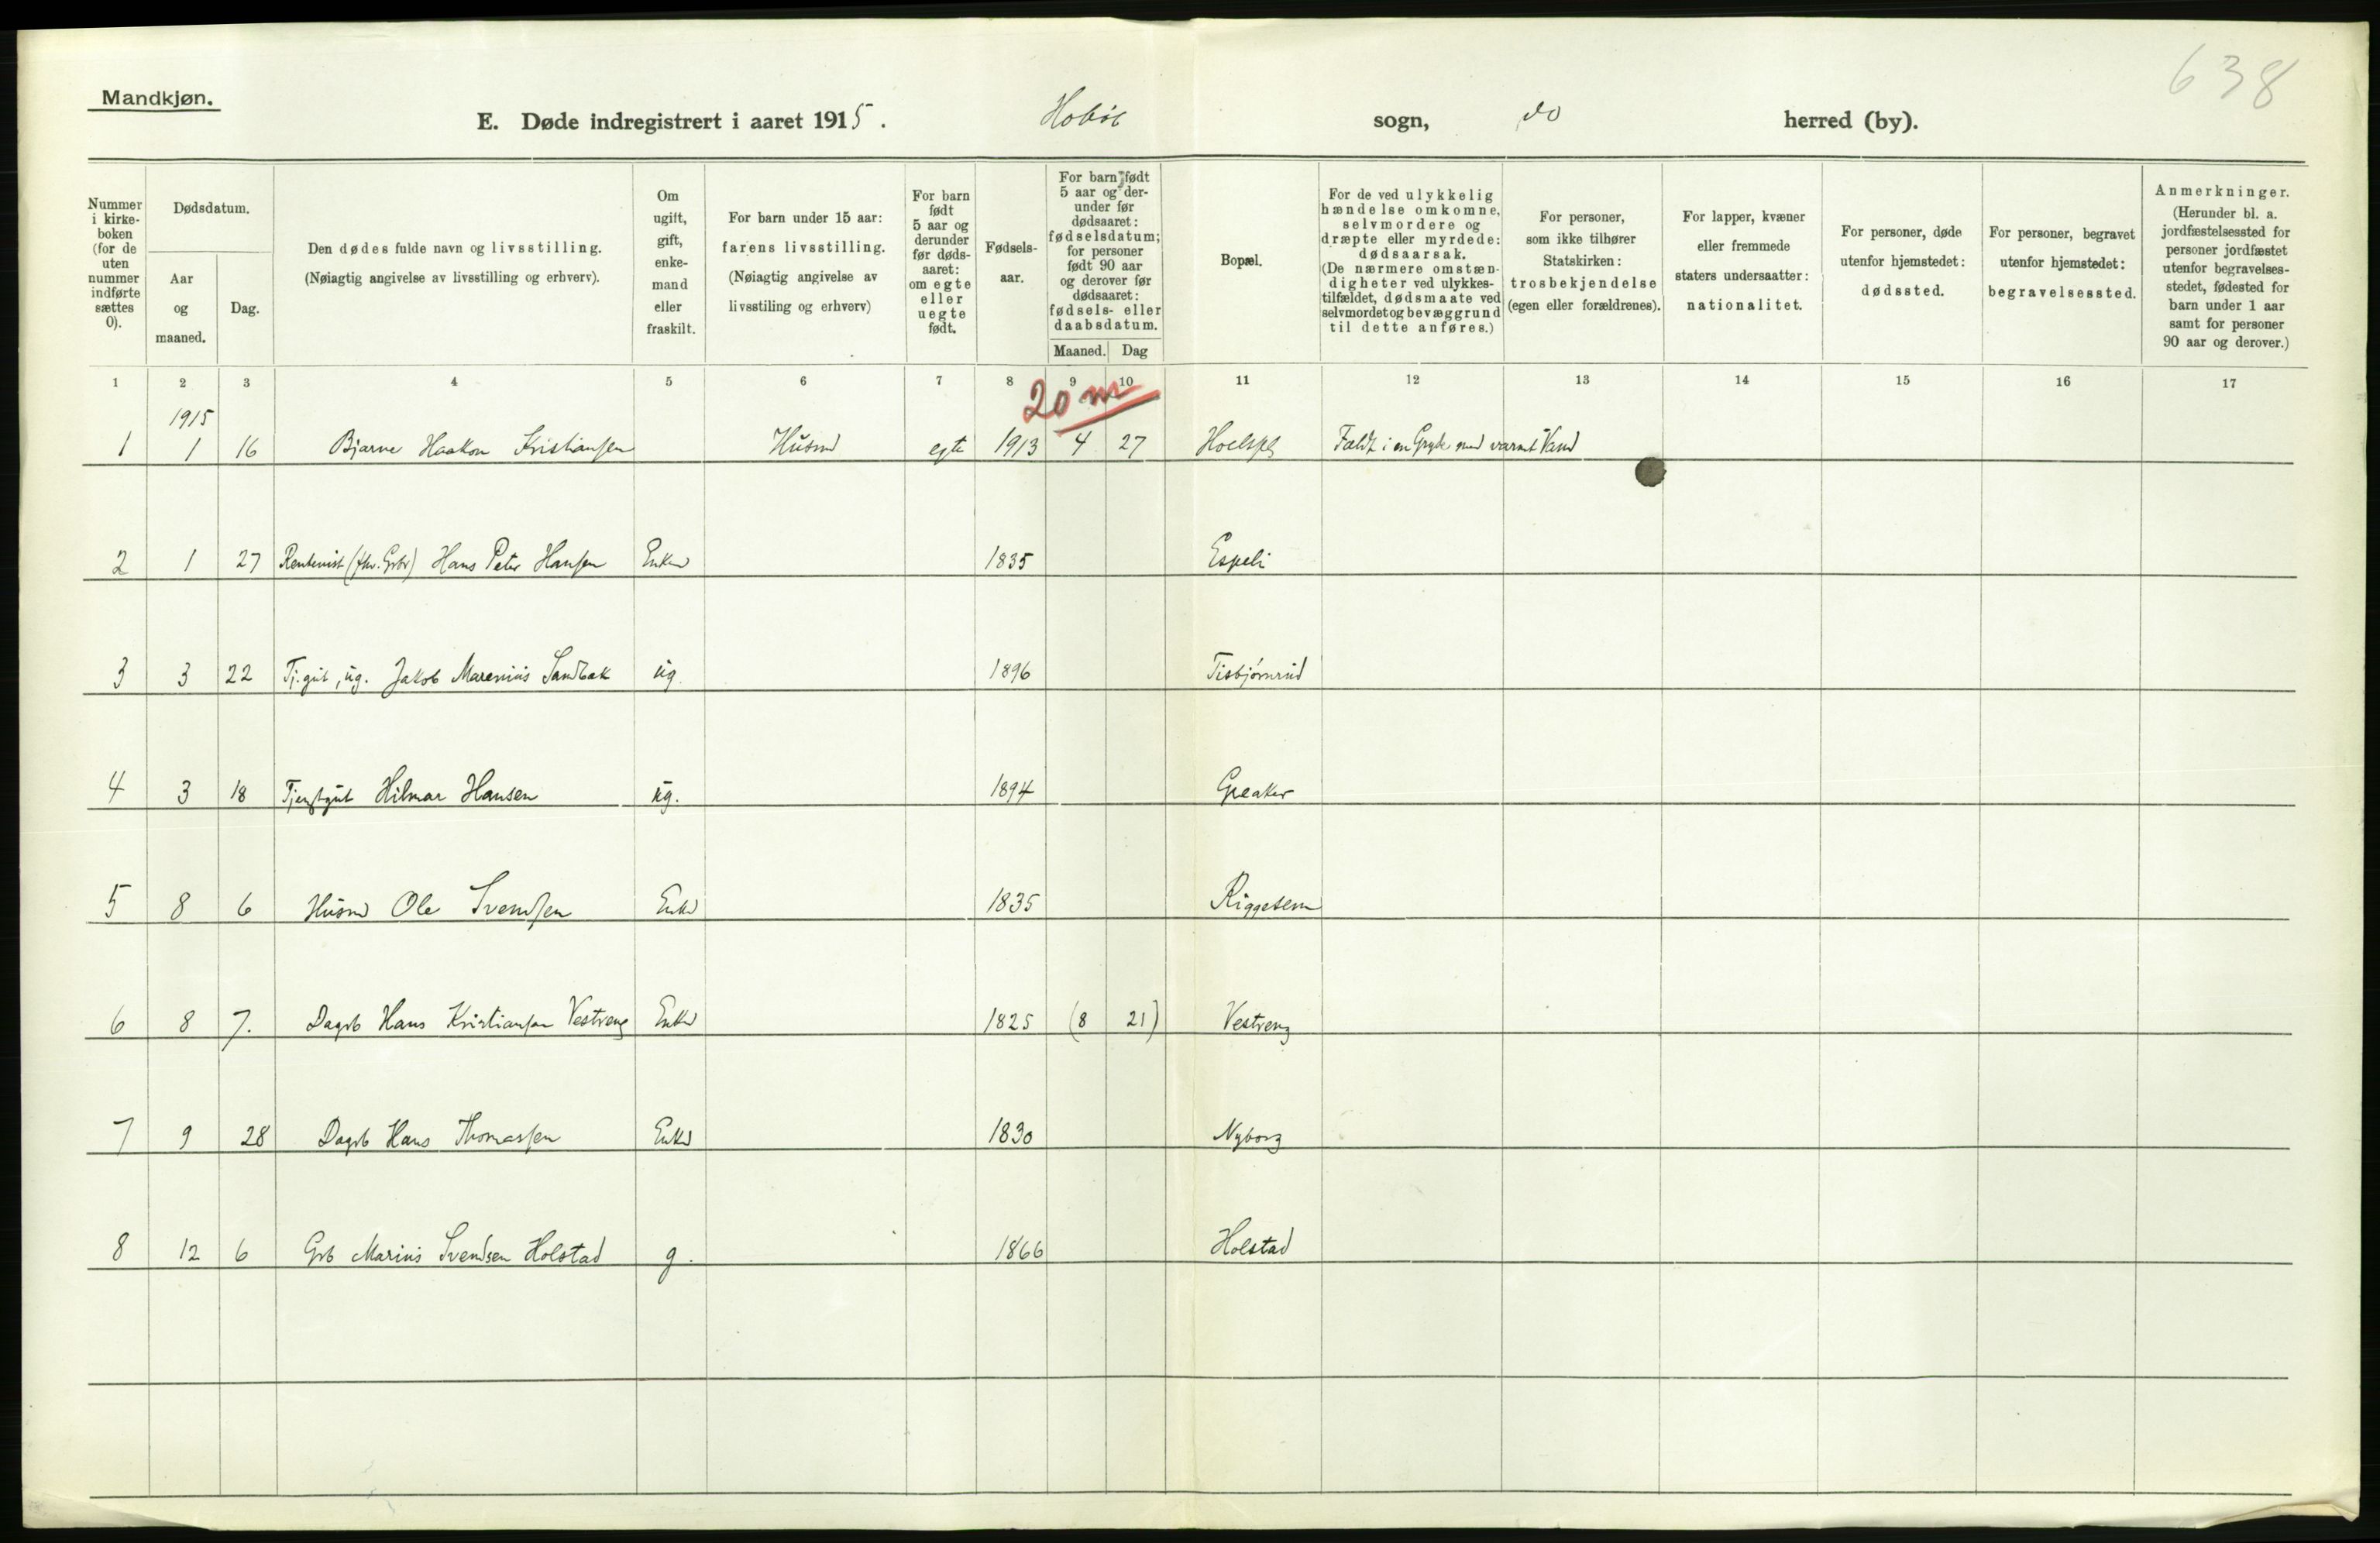 638
Mandkjøn.
E. Døde indregistrert i aaret 1915. Hobøl sogn, do herred (by).
Nummer i kirke-boken (for de uten nummer indførte sættes 0).
Dødsdatum.
Aar og maaned.
Dag.
Den dødes fulde navn og livsstilling.
(Nøiagtig angivelse av livsstilling og erhverv).
Om ugift, gift, enke-mand eller fraskilt.
For barn under 15 aar:
farens livsstilling.
(Nøiagtig angivelse av
livsstiling og erhverv)
For barn født 5 aar og derunder før døds-aaret: om egte eller uegte født.
Fødsels-aar.
For barn født 5 aar og der-under før dødsaaret: fødselsdatum; for personer født 90 aar og derover før dødsaaret: fødsels- eller daabsdatum.
Maaned. Dag
Bopæl.
For de ved ulykkelig hændelse omkomne, selvmordere og dræpte eller myrdede: dødsaarsak.
(De nærmere omstæn-digheter ved ulykkes-tilfældet, dødsmaate ved selvmordet og bevæggrund til dette anføres.)
For personer, som ikke tilhører Statskirken: trosbekjendelse (egen eller forældrenes).
For lapper, kvæner eller fremmede staters undersaatter: nationalitet.
For personer, døde utenfor hjemstedet: dødssted.
For personer, begravet utenfor hjemstedet: begravelsessted.
Anmerkninger.
(Herunder bl. a. jordfæstelsessted for personer jordfæstet utenfor begravelses-stedet, fødested for barn under 1 aar samt for personer 90 aar og derover.)
1 2 3 4 5 6 7 8 9 10 11 12 13 14 15 16 17
20 m
1915
1 1 16 Bjarne Haakon Kristiansen Husmd egte 1913 4 27 Hoelspl Faldt i en Gryde med varmt Vand
2 1 27 Rentenist (fhv. Grbr) Hans Peter Hansen Enkem 1835 Espeli
3 3 22 Tj.gut, ug. Jakob Marenius Sandbak ug. 1896 Tisbjørnrud
4 3 18 Tjenstgut Hilmar Hansen ug. 1894 Greaker
5 8 6 Husmd Ole Svendsen Enkd 1835 Riggesem
6 8 7. Dagrb Hans Kristiansen Vestreng Enkd 1825 (8 21) Vestreng
7 9 28 Dagrb Hans Thomassen Enkd 1830 Nyborg
8 12 6 Grb Marius Svendsen Holstad g. 1866 Holstad